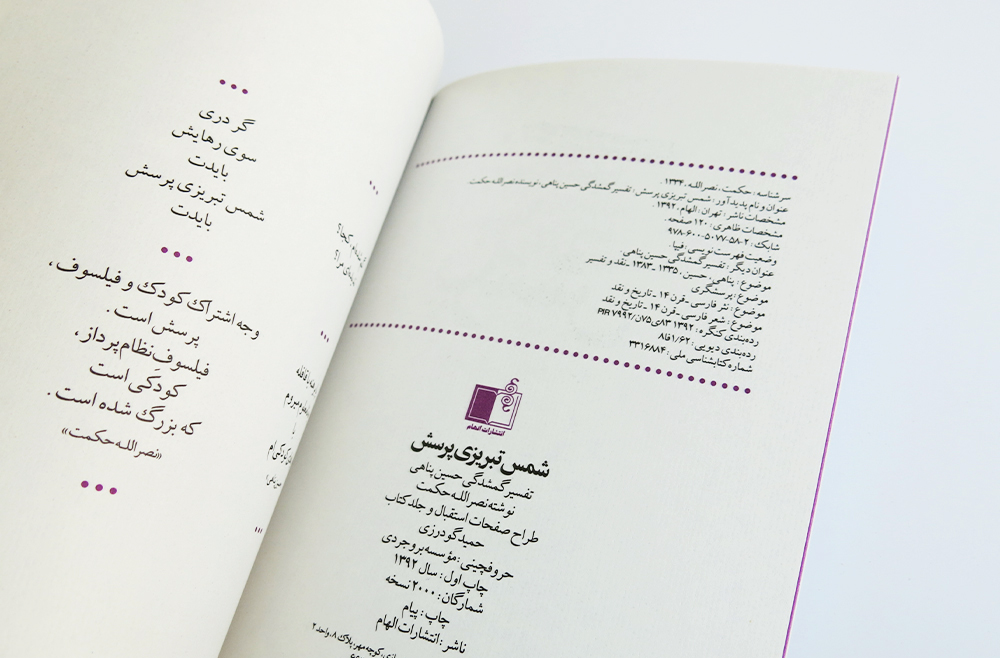 سرشناسه: حکمت، نصرالله، ۱۳۳۴.
عنوان و نام پدیدآور: شمس تبریزی پرسش: تفسیر گمشدگی حسین پناهی، نویسنده نصرالله حکمت.
مشخصات ناشر: تهران، الهام، ۱۳۹۲.
مشخصات ظاهری: ۱۲۰ صفحه.
شابک: ۲-۵۸-۵۰۷۷-۶۰۰-۹۷۸
وضعیت فهرست نویسی: فیپا.
عنوان دیگر: تفسیر گمشدگی حسین پناهی.
موضوع: پناهی، حسین، ۱۳۳۵ ـ ۱۳۸۳ ـ نقد و تفسیر
موضوع: پرسشگری
موضوع: نثر فارسی ـ قرن ۱۴ ـ تاریخ و نقد
موضوع: شعر فارسی ـ قرن ۱۴ ـ تاریخ و نقد
رده‌بندی کنگره: ۱۳۹۲ ۸۳ی۷۵ن/PIR ۷۹۹۲
رده‌بندی دیویی: ۱/۶۲فا۸
شماره کتابشناسی ملی: ۳۳۱۶۸۸۴
انتشارات الهام
شمس تبریزی پرسش
تفسیر گمشدگی حسین پناهی
نوشته نصرالله حکمت
طراح صفحات استقبال و جلد کتاب
حمید گودرزی
حروفچینی: مؤسسه بروجردی
چاپ اول: سال ۱۳۹۲
شمارگان: ۲۰۰۰ نسخه
چاپ: پیام
ناشر: انتشارات الهام
کوچه مهر، پلاک ۸، واحد ۲
گر دری
سوی رهایش
بایدت
شمس تبریزی پرسش
بایدت
وجه اشتراک کودک و فیلسوف،
پرسش است.
فیلسوفِ نظام‌پرداز،
کودکی است
که بزرگ شده است.
«نصرالله حکمت»